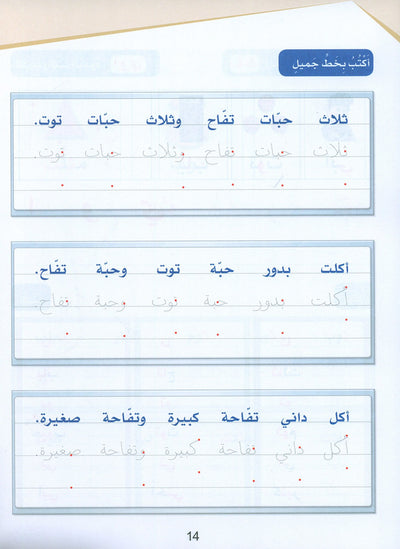 أكتُبُ بِخَطٍّ جَميلٍ
ثلاث حبّات تفّاح وثلاث حبّات توت.
ثلاث حبات تفاح وثلاث حبات توت.
أكلت بدور حبّة توت وحبّة تفّاح.
أكلت بدور حبة توت وحبة تفاح.
أكل داني تفّاحة كبيرة وتفّاحة صغيرة.
أكل داني تفاحة كبيرة وتفاحة صغيرة.
14